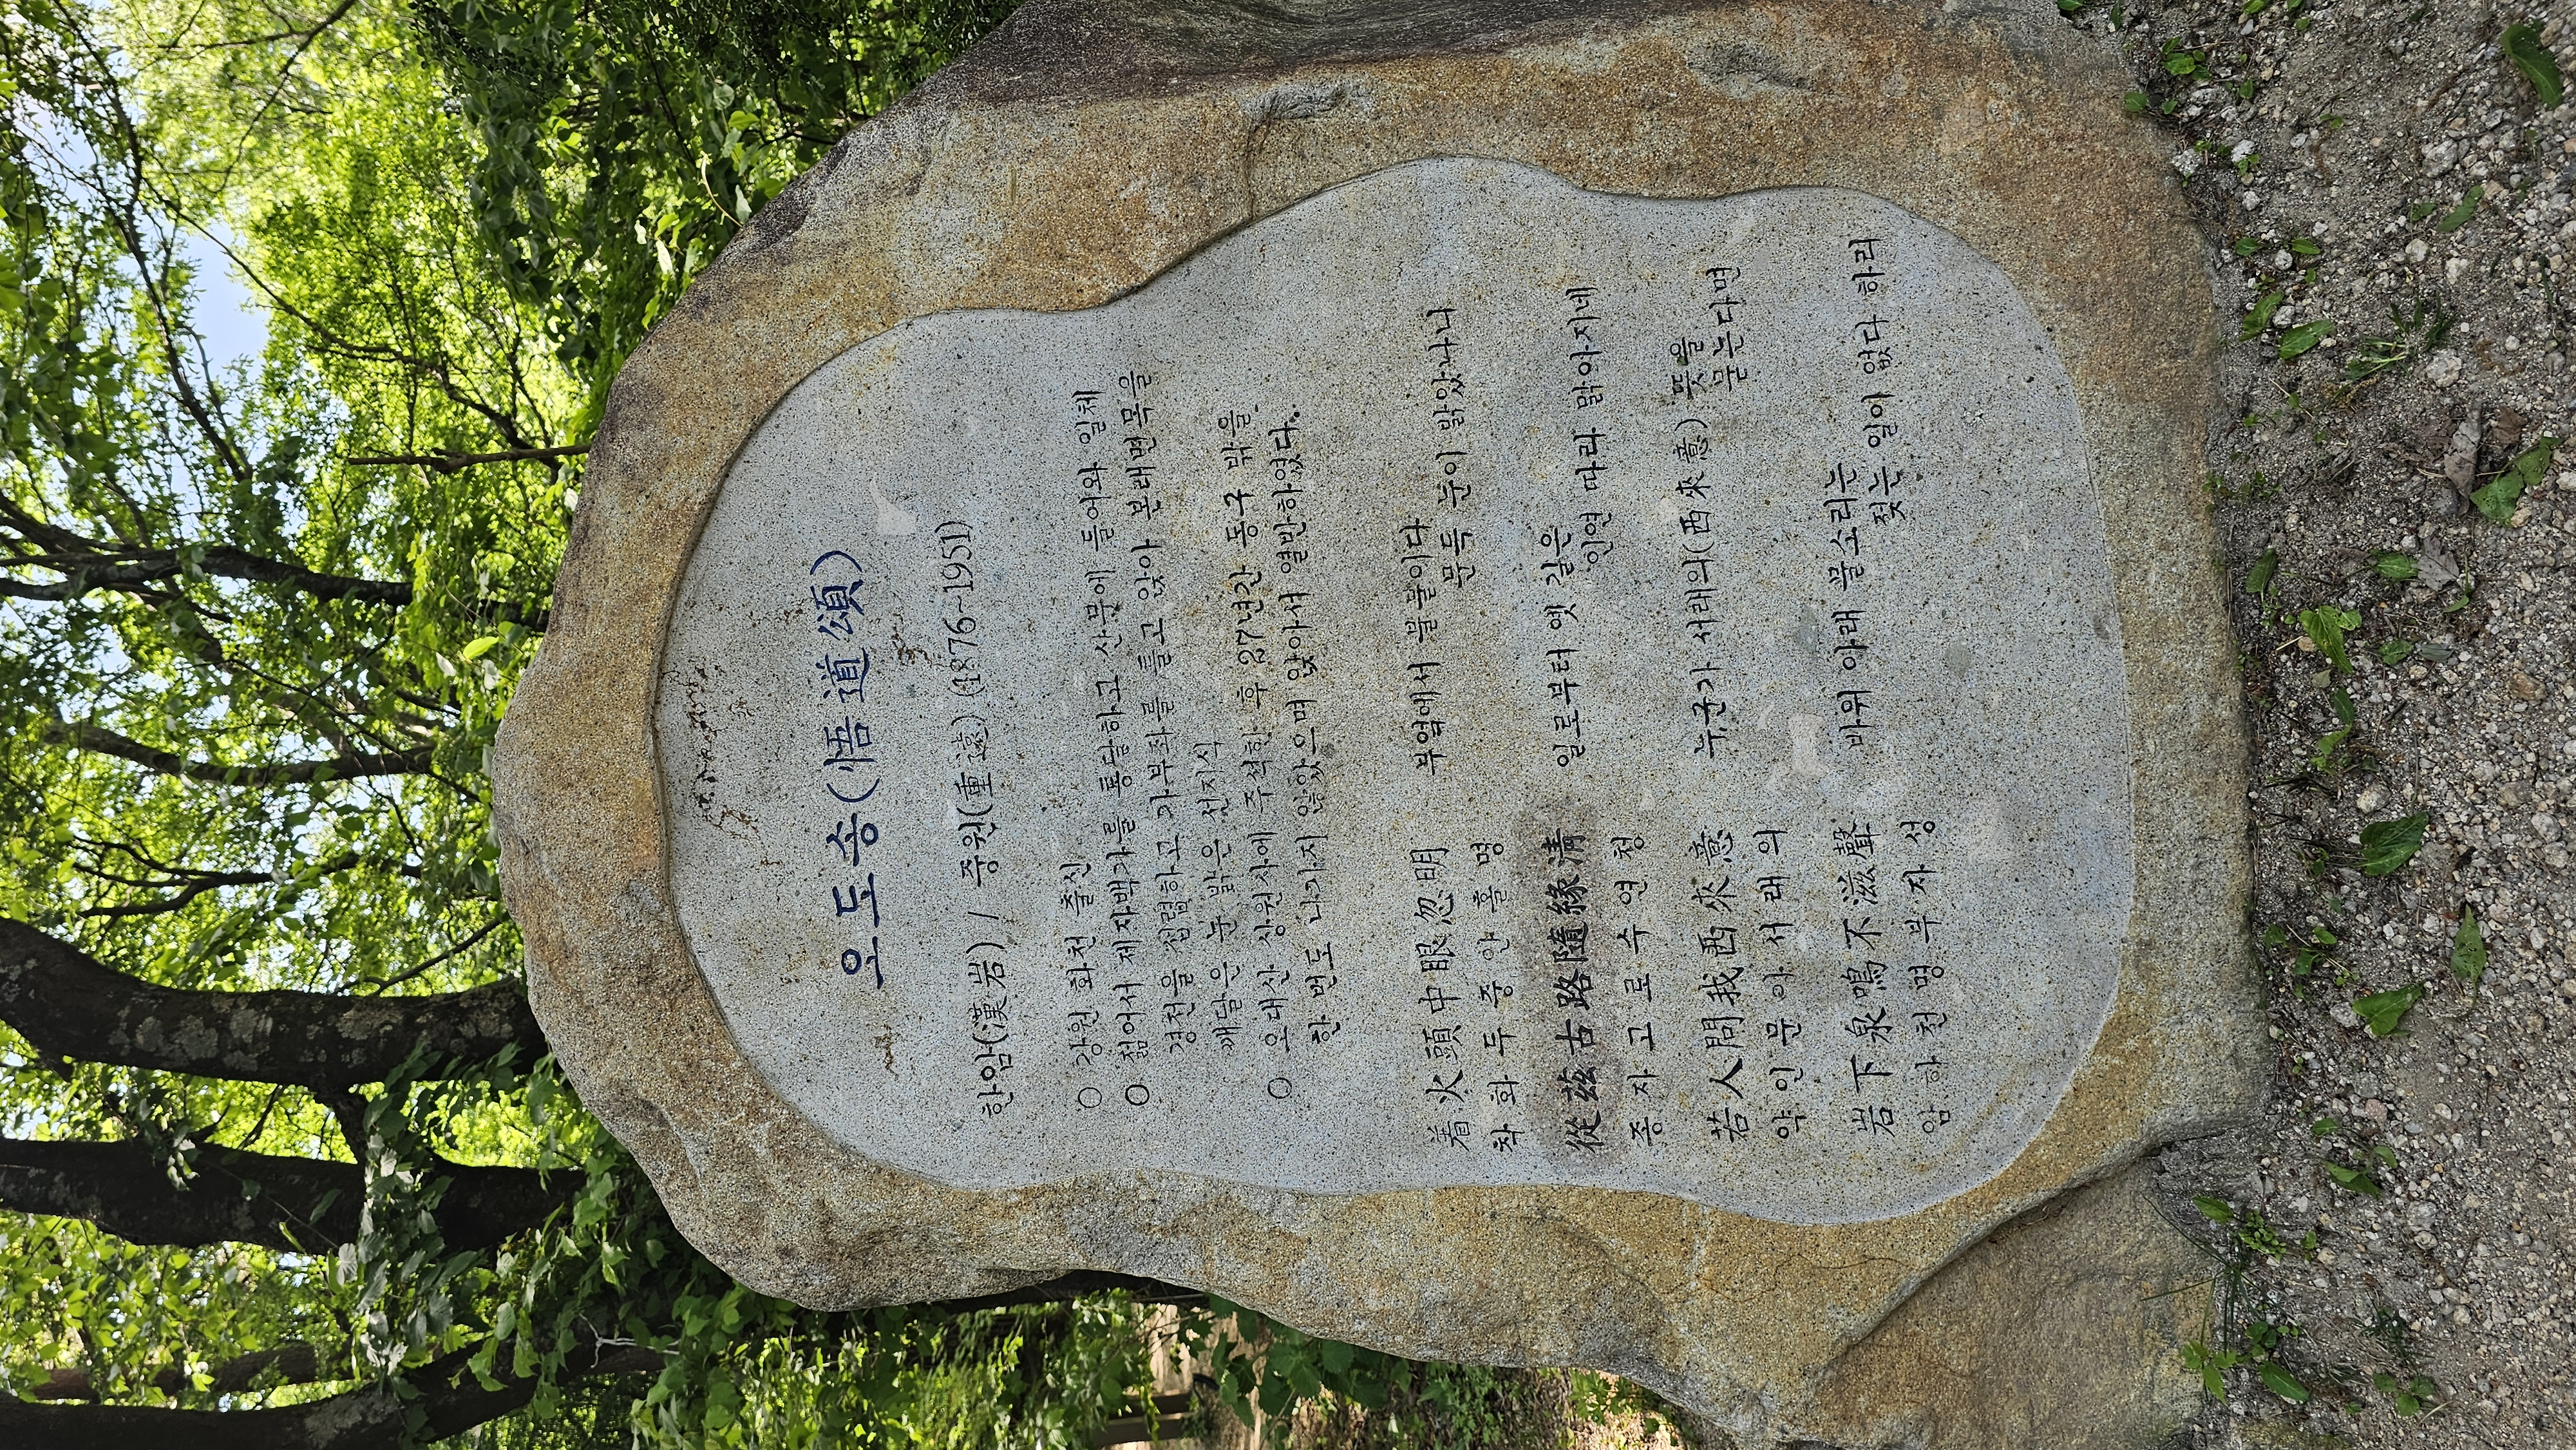 오도송(悟道頌)
한암(漢岩) / 중원(重遠) (1876~1951)
○ 강원 화천 출신
○ 젊어서 제자백가를 통달하고 산문에 들어와 일체
경전을 섭렵하고 가부좌를 틀고 앉아 본래면목을
깨달은 눈 밝은 선지식
○ 오대산 상원사에 주석한 후 27년간 동구 밖을
한 번도 나가지 않았으며 앉아서 열반하였다.
着火頭中眼忽明 부엌에서 불붙이다
착화두중안홀명 문득 눈이 밝았나니
從茲古路隨緣清 일로부터 옛 길은
종자고로수연청 인연 따라 맑아지네
若人問我西來意 누군가 서래의(西來意) 뜻을
약인문아서래의 묻는다면
岩下泉鳴不滋聲 바위 아래 물소리는
암하천명부자성 젖는 일이 없다 하리